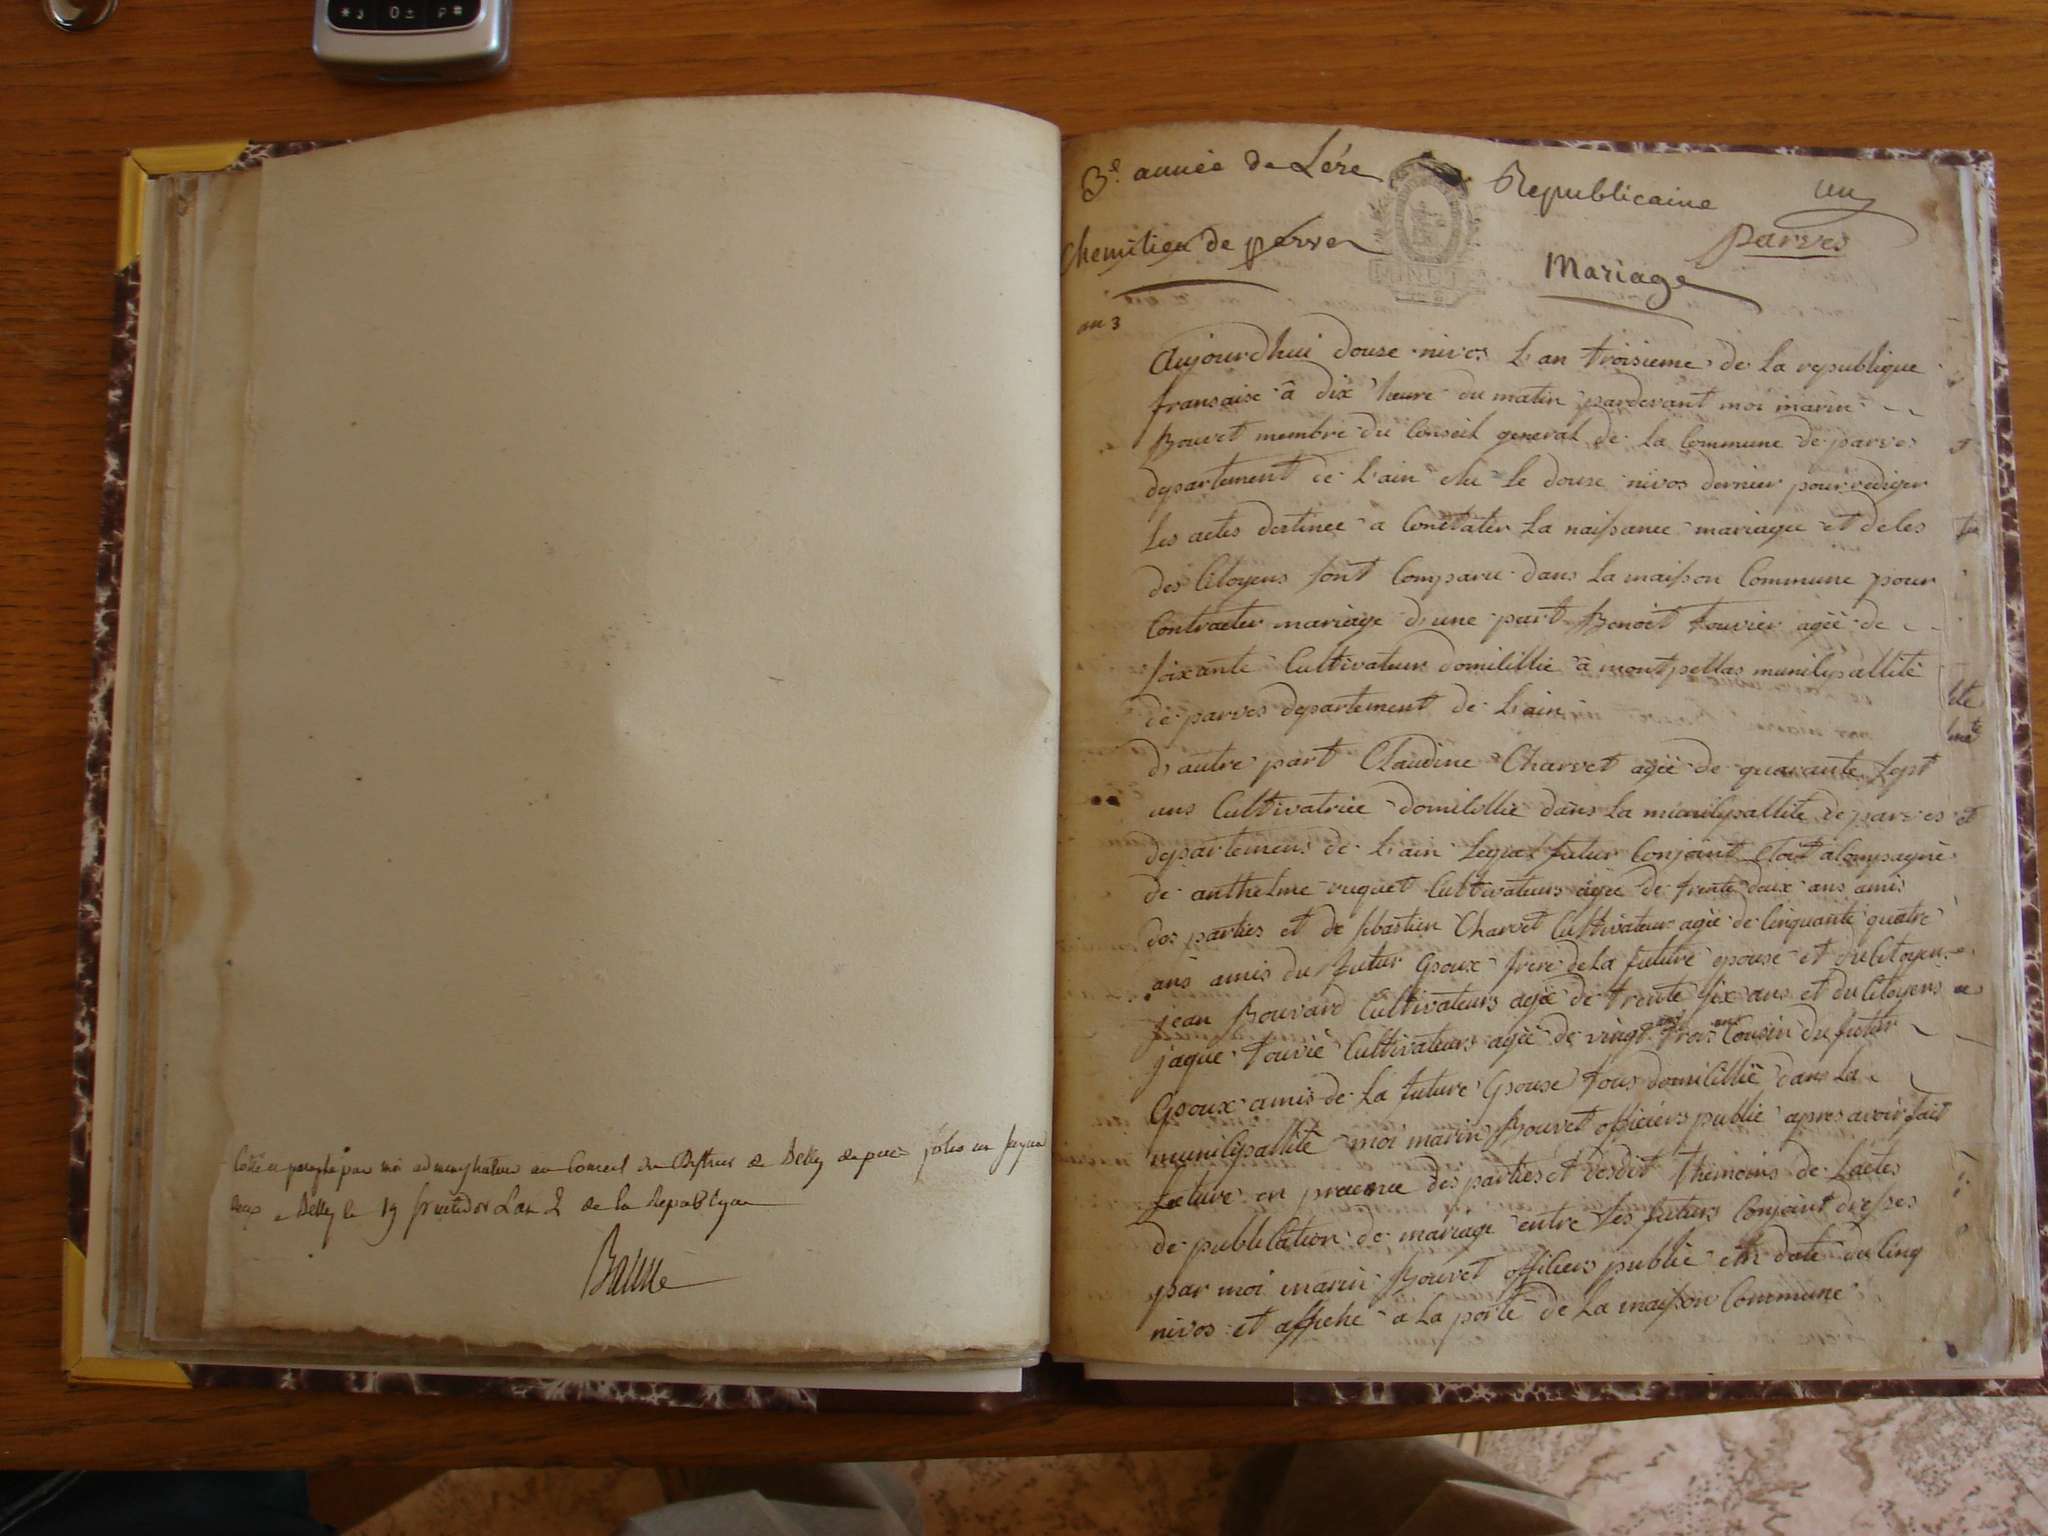 * 0 ± #
Cotté et paraphé par moi administrateur au Conseil du District de Belley
deux a Belley le 19 fructidor L'an 2 de la Republique
3e. année de Lére Republicaine un
Chemilieu de parve Parves
Mariage
an 3
Aujourdhui douse nivos L'an troisieme de La republique
fransaise â dix heure du matin pardevant moi marin
Bouvet membre du Conseil general de La Commune de parves
departement de L'ain elu le douse nivos dernier pour rediger
Les actes destinee a Constater La naissance mariagee et deces
des Citoyens sont Comparu dans La maison Commune pour
Contracter mariage d'une part Benoit touvier ageé de
soixante Cultivateurs domicillié â montpellas municipallité
de parves departement de L'ain
d'autre part Claudine Charvet ageé de quarante sept
ans Cultivatrice domicillié dans La municipallité de parves et
departemens de L'ain Leque futur Conjoint etoit acompagné
de anthelme ruquet Cultivateurs agee de trente deux ans amis
des parties et de sebastien Charvet Cultivateur ageé de Cinquante quatre
ans amis du futur Epoux frere de La future epouse et du Citoyen
jean Bouvard Cultivateurs ageé de trente six ans et du Citoyens
jaque touvié Cultivateurs ageé de vingt trois ans Cousin du futur
Epoux amis de La future Epouse tous domicillié dans La
municipallité moi marin Bouvet officiers public apres avoir fait
Lecture en presence des parties et desdit themoins de Lactes
de publication de mariage entre Les futurs Conjoint dresses
par moi marin Bouvet officiers public en date du Cinq
nivos et affiche a La porte de La maison Commune